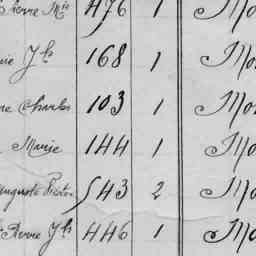 Pierre Mie 476 1 Mo
rie Jh 168 1 Mo
ne Charles 103 1 Mo
Marie 144 1 Mo
Auguste 543 2 Mo
Pierre Jh 446 1 Mo